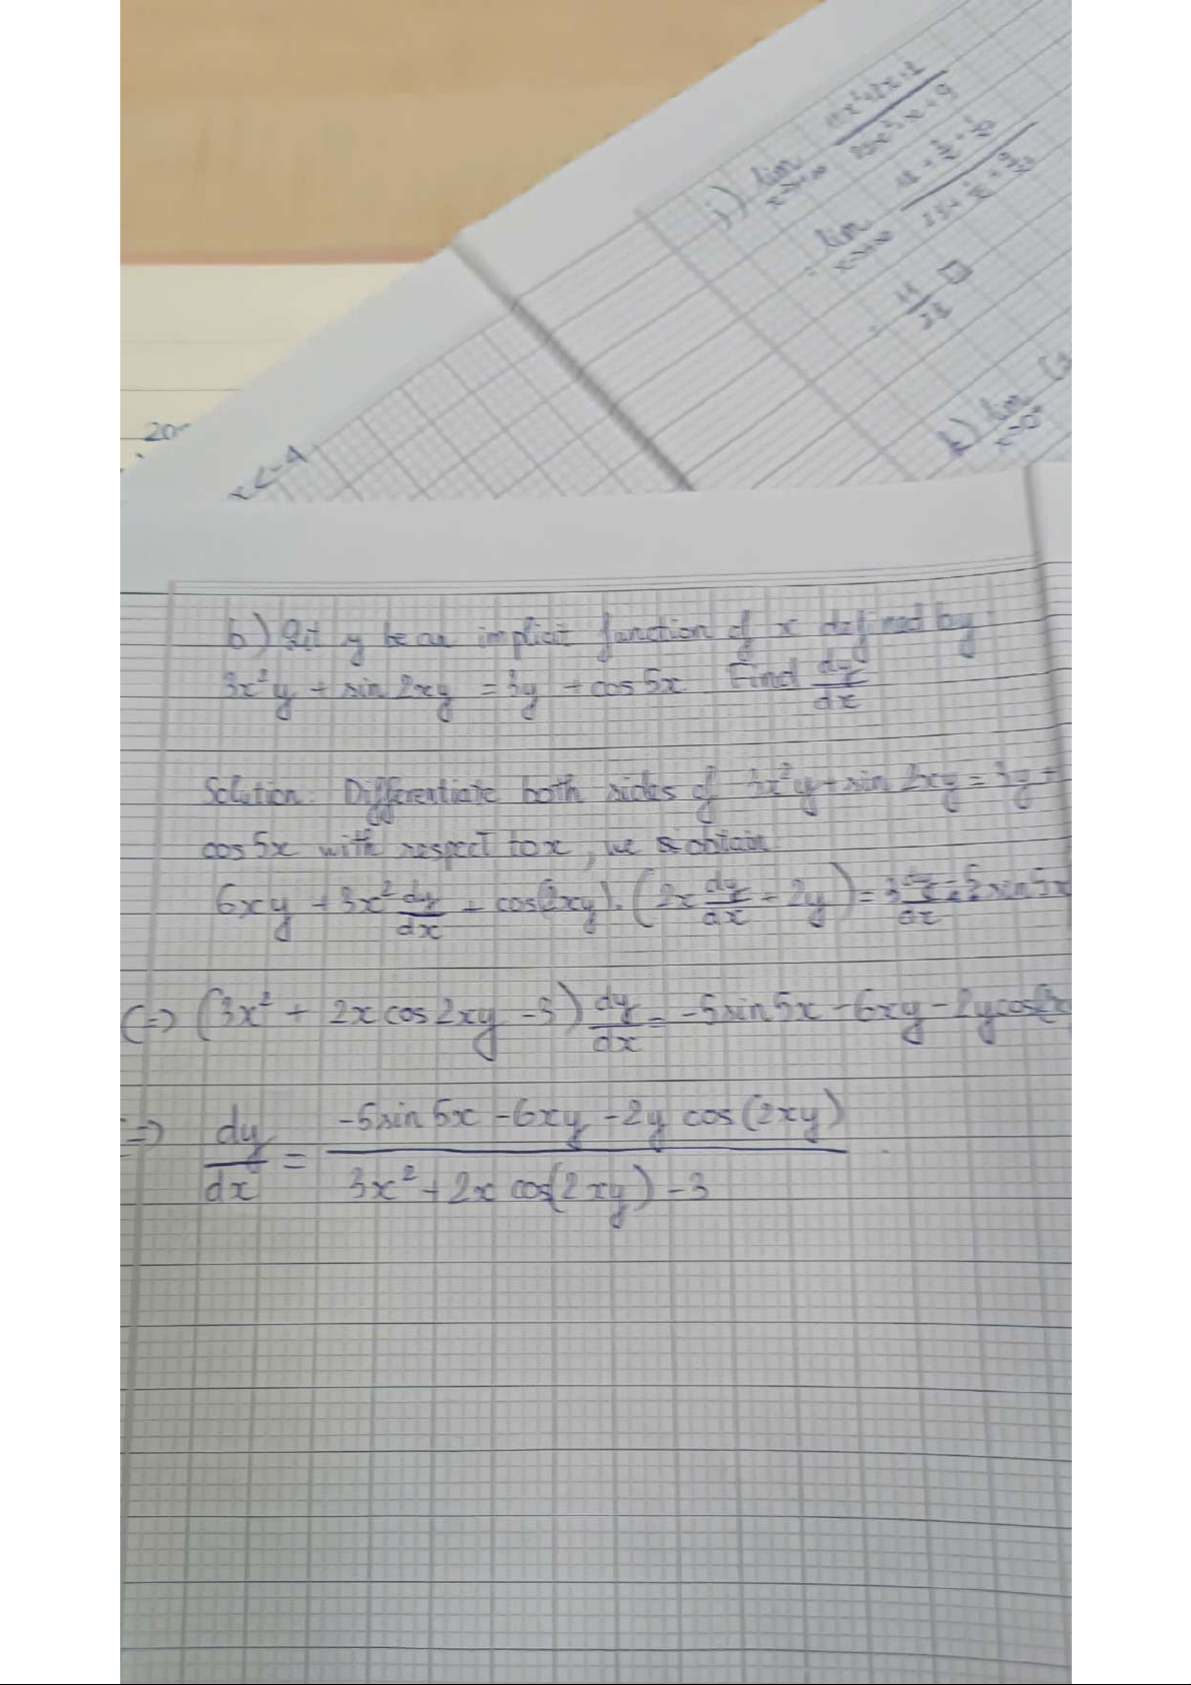 j) lim x→+∞
= lim x→+∞
k) lim x→0⁺
20
x<-4
b) Let y be an implicit function of x defined by
3x²y + sin 2xy = 3y + cos 5x Find dy/dx
Solution: Differentiate both sides of 3x²y + sin 2xy = 3y +
cos 5x with respect to x, we obtain
6xy + 3x² dy/dx + cos(2xy).(2x dy/dx + 2y) = 3 dy/dx - 5 sin 5x
(=> (3x² + 2x cos 2xy - 3) dy/dx = -5 sin 5x - 6xy - 2y cos(2x
=> dy/dx = (-5 sin 5x - 6xy - 2y cos(2xy))/(3x² + 2x cos(2xy) - 3)